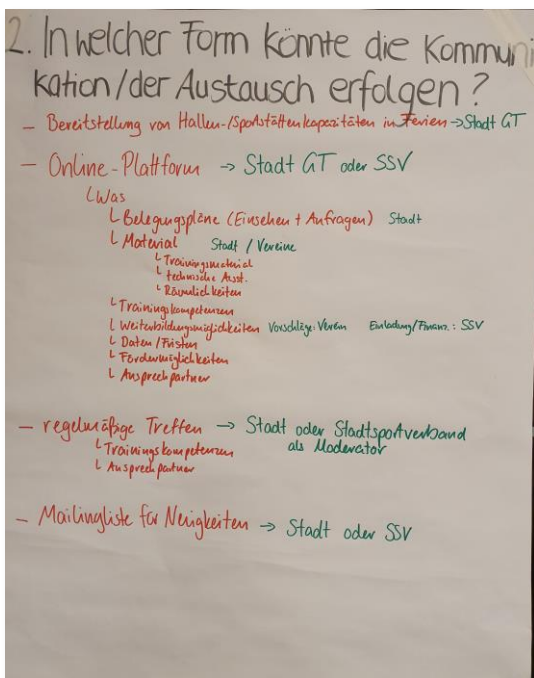 2. In welcher Form könnte die Kommuni
kation/der Austausch erfolgen?
- Bereitstellung von Hallen-/Sportstättenkapazitäten in Ferien → Stadt GT
- Online-Plattform → Stadt GT oder SSV
└ Was
└ Belegungspläne (Einsehen + Anfragen) Stadt
└ Material Stadt / Vereine
└ Trainingsmaterial
└ technische Ausst.
└ Räumlichkeiten
└ Trainingskompetenzen
└ Weiterbildungsmöglichkeiten Vorschläge: Verein Einladung/Finanz.: SSV
└ Daten/Fristen
└ Fördermöglichkeiten
└ Ansprechpartner
- regelmäßige Treffen → Stadt oder Stadtsportverband
als Moderator
└ Trainingskompetenzen
└ Ansprechpartner
- Mailingliste für Neuigkeiten → Stadt oder SSV